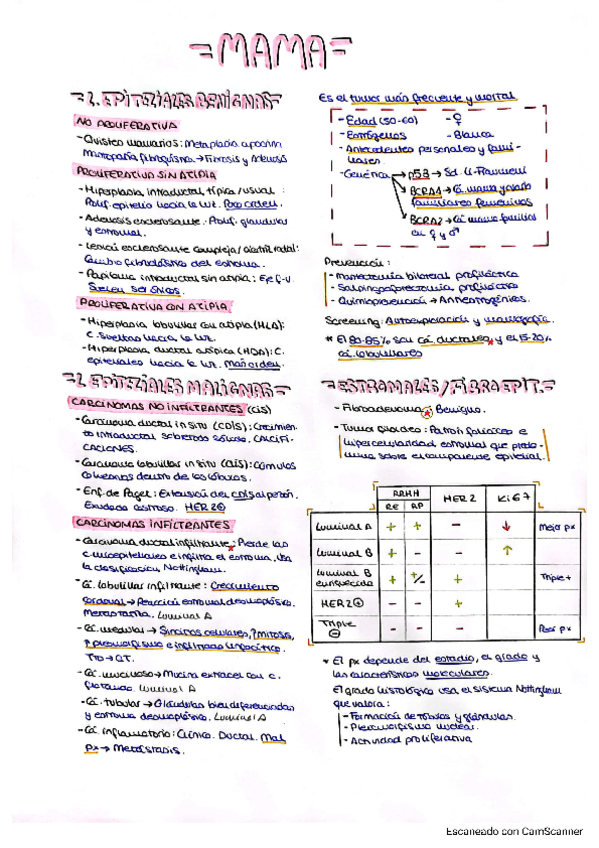 =MAMA=
=L. EPITELIALES BENIGNAS=
NO PROLIFERATIVA
- Quistes mamarios: Metaplasia apocrina
Mastopatía fibroquística → Fibrosis y Adenosis
PROLIFERATIVA SIN ATIPIA
- Hiperplasia intraductal típica/usual:
Prolif. epitelio hacia la luz. Poco orden.
- Adenosis esclerosante: Prolif. glandular
y estromal.
- Lesión esclerosante compleja/cicatriz radial:
Cambio fibroelástico del estroma.
- Papiloma intraductal sin atipia: Eje f-v.
Suelen ser únicos.
PROLIFERATIVA CON ATIPIA
- Hiperplasia lobulillar con atipia (HLA):
C. sueltas hacia la luz.
- Hiperplasia ductal atípica (HDA): C.
epiteliales hacia la luz. Más orden.
=L. EPITELIALES MALIGNAS=
CARCINOMAS NO INFILTRANTES (CIS)
- Carcinoma ductal in situ (CDIS): Crecimien-
to intraductal sobretodo sólido. CALCIFI-
CACIONES.
- Carcinoma lobulillar in situ (CLIS): Cúmulos
cohesivos dentro de los lóbulos.
- Enf. de Paget: Extensión del CDIS al pezón.
Exudado costroso. HER2⊕
CARCINOMAS INFILTRANTES
- Carcinoma ductal infiltrante: Pierde las
c. mioepiteliales e infiltra el estroma. Usa
la clasificación Nottingham.
- Cá. lobulillar infiltrante: Crecimiento
→ Reacción estromal desmoplásica.
Metastatiza. Luminal A
- Cá. medular → Sincitios celulares, ↑mitosis,
↑pleomorfismo e infiltrado linfocítico.
Tto → QT.
- Cá. mucinoso → Mucina extracel con c.
flotando. Luminal A
- Cá. tubular → Glándulas bien diferenciadas
y estroma desmoplásico. Luminal A
- Cá. inflamatorio: Clínico. Ductal. Mal
px → Metástasis.
Es el tumor más frecuente y mortal
- Edad (50-60) - ♀
- Estrógenos - Blanca
- Antecedentes personales y fami-
liares.
- Genética → p53 → Sd. Li-Fraumeni
→ BCRA1 → Cá. mama y ovario
familiares femeninos
→ BCRA2 → Cá. mama familias
en ♀ y ♂
Prevención:
- Mastectomía bilateral profiláctica
- Salpingooforectomía profiláctica
- Quimioprevención → Antiestrógenos.
Screening: Autoexploración y mamografía.
* El 80-85% son cá. ductales y el 15-20%
cá. lobulillares
=ESTROMALES/FIBROEPIT.=
- Fibroadenoma * Benigno.
- Tumor filodes: Patrón foliáceo e
hipercelularidad estromal que predo-
mina sobre el componente epitelial.
RRHH HER2 Ki67
RE RP
Luminal A + + - ↓ Mejor px
Luminal B + - - ↑
Luminal B
enriquecida + +/- + Triple +
HER2⊕ - - +
Triple
⊖ - - - Peor px
* El px depende del estadio, el grado y
las características moleculares.
El grado histológico usa el sistema Nottingham
que valora:
- Formación de túbulos y glándulas.
- Pleomorfismo nuclear.
- Actividad proliferativa
Escaneado con CamScanner